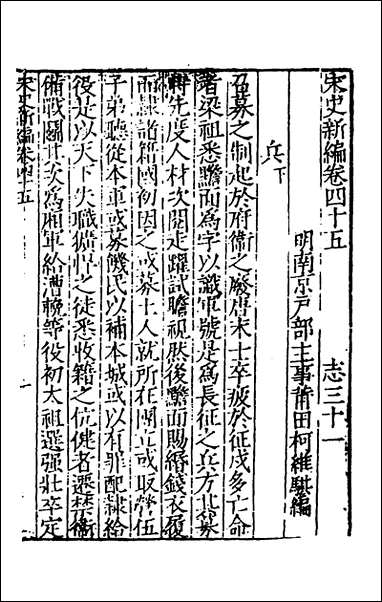 宋史新編卷四十五　志三十一
明南京戶部主事莆田柯維騏編
兵下
召募之制起於府衛之廢唐末士卒疲於征戍多亡命
者梁祖悉黵而為字以識軍號是為長征之兵方其募
時先度人材次閱走躍試瞻視然後黵而賜緡錢衣履
而隸諸籍國初因之或募土人就所在團立或取營伍
子弟聽從本軍或募饑民以補本城或以有罪配隸給
役是以天下失職獷悍之徒悉收籍之伉健者遷禁衛
備戰鬬其次為廂軍給漕輓等役初太祖選强壯卒定
宋史新編卷四十五　一